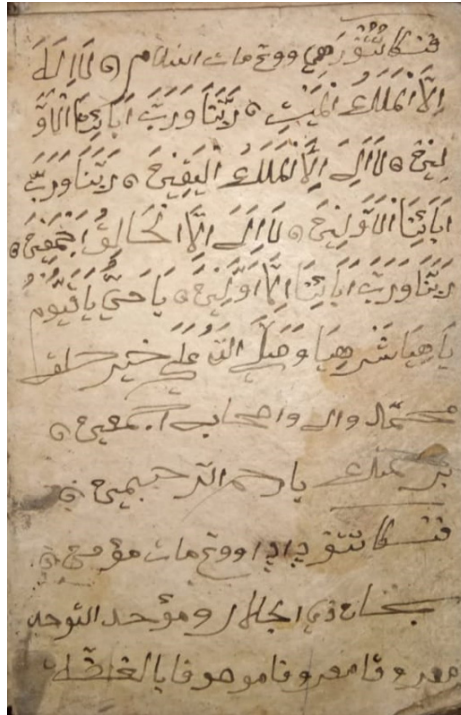 ووڠ مات اسلام ۞ لَااِلَهَ
اِلَّاالْمَلَكُ الْمُبِيْنِ ۞ رَبَّنَا وَرَبَّ اَبَائِنَا الْاَوَّ
لِيْنَ ۞ لَااِلَهَ اِلَّاالْمَلَكُ الْيَقِيْنَ ۞ رَبَّنَا وَرَبَّ
اَبَائِنَا الْاَوَّلِيْنَ ۞ لَااِلَهَ اِلَّا الْخَالِقُ اَجْمَعِيْنَ ۞
رَبَّنَا وَرَبَّ اَبَائِنَا اِلَّا اَوَّلِيْنَ ۞ يَا حَيُّ يَا قَيُّوْمُ
يَا هِيَا شَرْهِيَا وَصَلَّى اللهُ عَلَى خير خلقه
محمد واله واصحابه اجمعين ۞
برحمتك يا رحم الرحيمين
ووڠ مات مؤمن
سبحان ذي الجلال ومؤحد التوحد
معروفا معروفا موصوفا